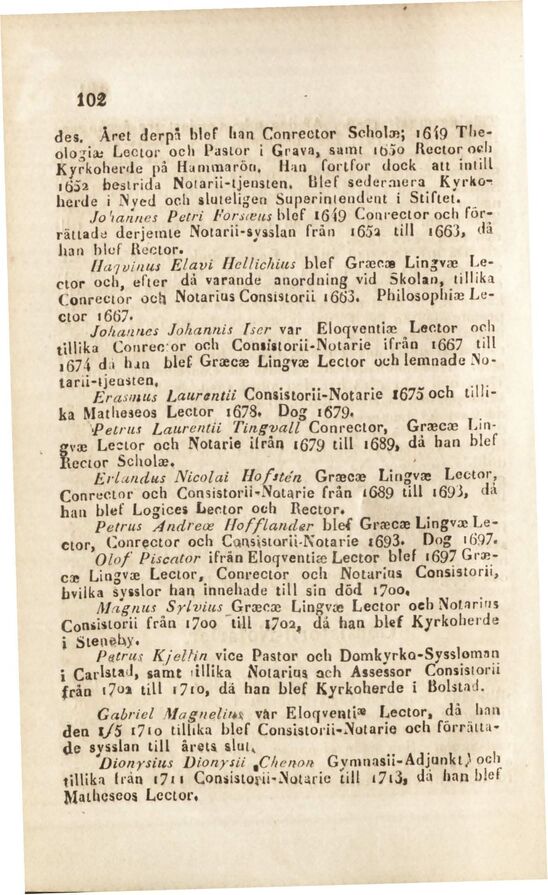 102
des. Året derpå blef han Conrector Scholæ; 1649 The-
ologiæ Lector och Pastor i Grava, samt 1650 Rector och
Kyrkoherde på Hammarön. Han fortfor dock att intill
1652 bestrida Notarii-tjensten. Blef sedermera Kyrko-
herde i Nyed och sluteligen Superintendent i Stiftet.
Johannes Petri Forsæus blef 1649 Conrector och för-
rättade derjemte Notarii-sysslan från 1652 till 1663, då
han blef Rector.
Haqvinus Elavi Hellichius blef Græcæ Lingvæ Le-
ctor och, efter då varande anordning vid Skolan, tillika
Conrector och Notarius Consistorii 1663. Philosophiæ Le-
ctor 1667.
Johannes Johannis Iser var Eloqventiæ Lector och
tillika Conrector och Consistorii-Notarie ifrån 1667 till
1674 då han blef Græcæ Lingvæ Lector och lemnade No-
tarii-tjensten.
Erasmus Laurentii Consistorii-Notarie 1675 och tilli-
ka Matheseos Lector 1678. Dog 1679.
Petrus Laurentii Tingvall Conrector, Græcæ Lin-
gvæ Lector och Notarie ifrån 1679 till 1689, då han blef
Rector Scholæ.
Erlandus Nicolai Hofstén Græcæ Lingvæ Lector,
Conrector och Consistorii-Notarie från 1689 till 1693, då
han blef Logices Lector och Rector.
Petrus Andreæ Hofflander blef Græcæ Lingvæ Le-
ctor, Conrector och Consistorii-Notarie 1693. Dog 1697.
Olof Piscator ifrån Eloqventiæ Lector blef 1697 Græ-
cæ Lingvæ Lector, Conrector och Notarius Consistorii,
hvilka sysslor han innehade till sin död 1700.
Magnus Sylvius Græcæ Lingvæ Lector och Notarius
Consistorii från 1700 till 1702, då han blef Kyrkoherde
i Steneby.
Petrus Kjellin vice Pastor och Domkyrko-Syssloman
i Carlstad, samt tillika Notarius och Assessor Consistorii
från 1702 till 1710, då han blef Kyrkoherde i Bolstad.
Gabriel Magnelius var Eloqventiæ Lector, då han
den 1/5 1710 tillika blef Consistorii-Notarie och förrätta-
de sysslan till årets slut.
Dionysius Dionysii Chenon Gymnasii-Adjunkt, och
tillika från 1711 Consistorii-Notarie till 1713, då han blef
Matheseos Lector.